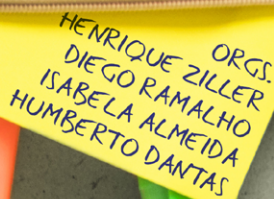 ORGS.
HENRIQUE ZILLER
DIEGO RAMALHO
ISABELA ALMEIDA
HUMBERTO DANTAS